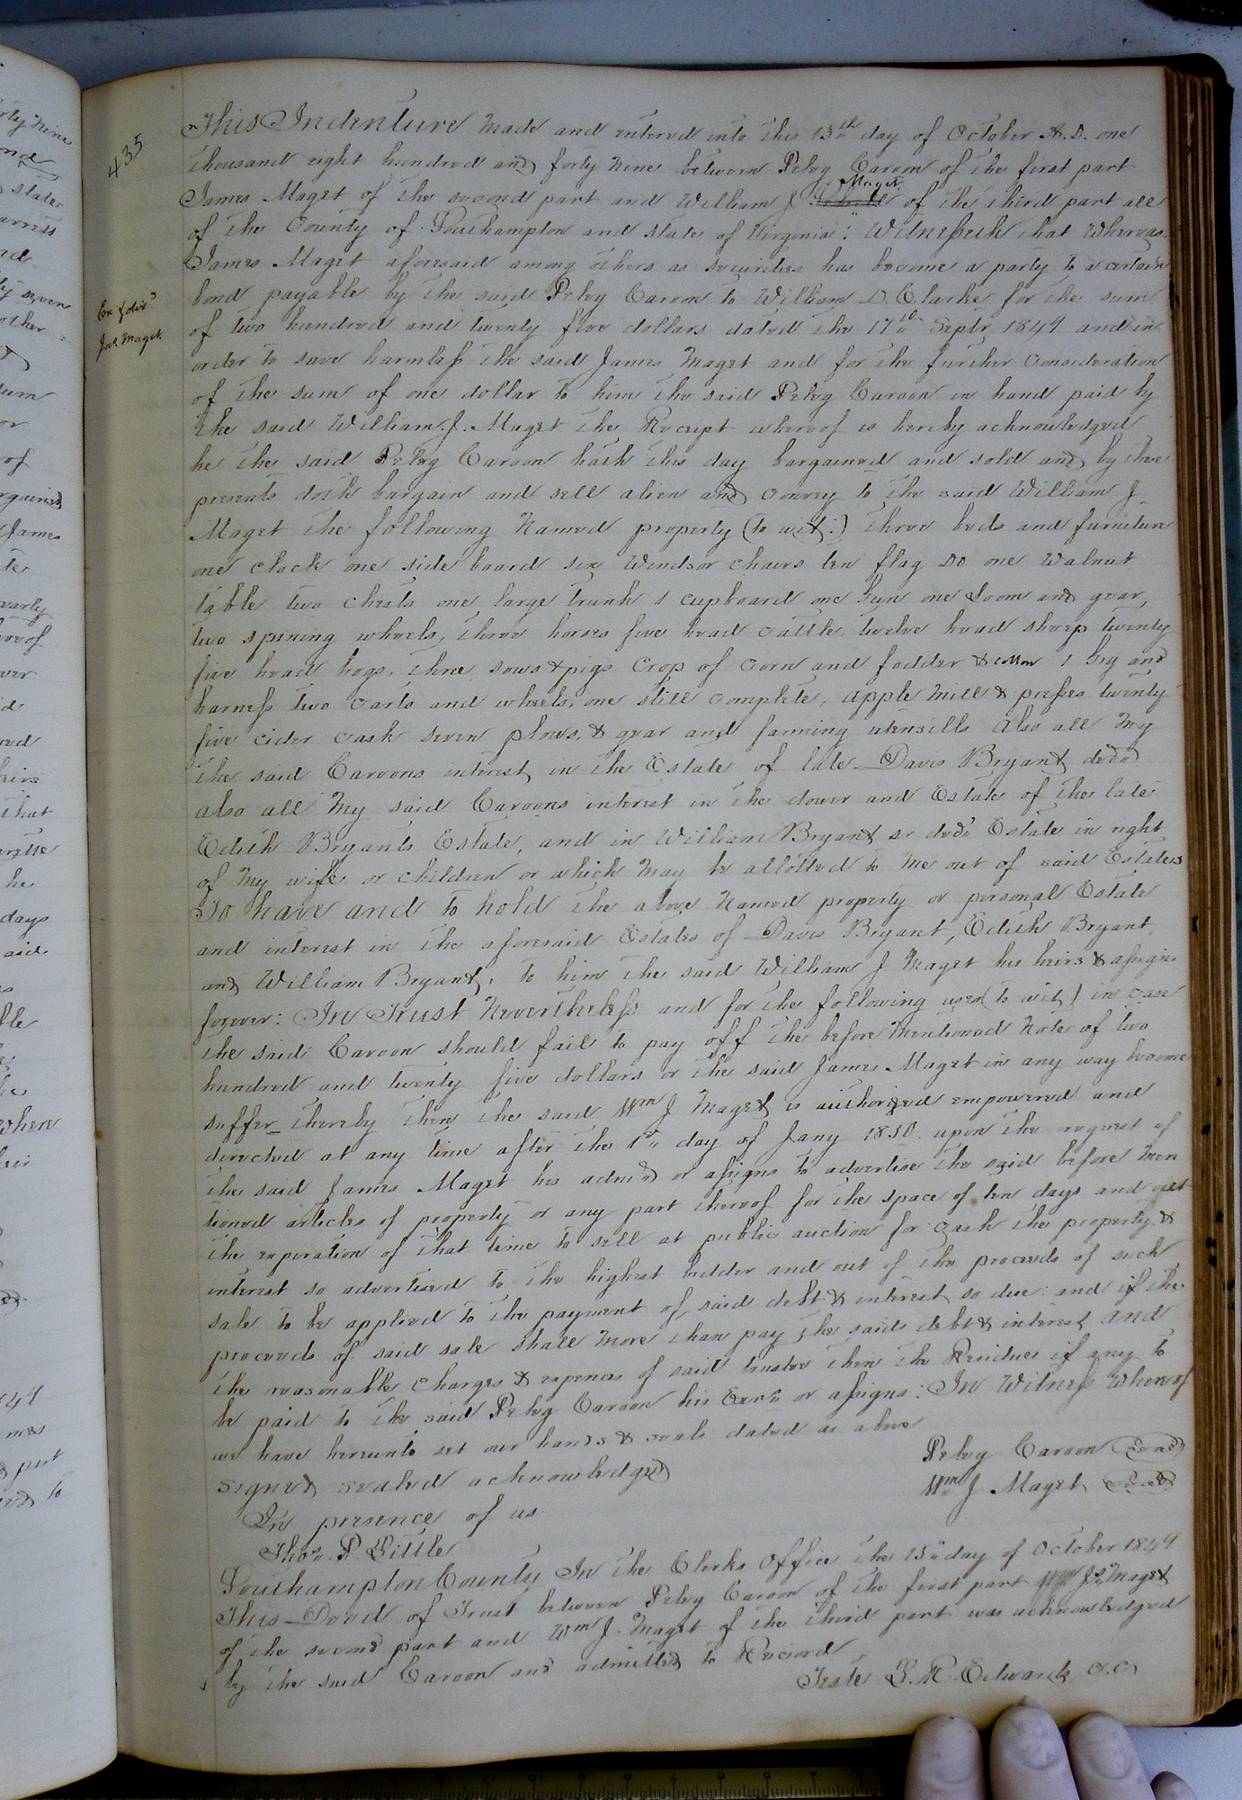 435
This Indenture Made and entered into this 13th day of October A.D. one
thousand eight hundred and forty nine between Peleg Caroon of the first part
James Maget of the second part and William J Maget of the third part all
of the County of Southampton and state of Virginia: Witnesseth that Whereas
James Maget aforesaid among others as securities has become a party to a certain
bond payable by the said Peleg Caroon to William D. Clarke for the sum
of two hundred and twenty five dollars dated the 17th Septr 1849 and in
order to save harmless the said James Maget and for the further consideration
of the sum of one dollar to him the said Peleg Caroon in hand paid by
the said William J. Maget the Receipt whereof is hereby acknowledged
he the said Peleg Caroon hath this day bargained and sold and by these
presents doth bargain and sell alien and convey to the said William J
Maget the following Named property (to wit:) three beds and furniture
one clock one side board six Windsor chairs ten flag Do one Walnut
table two chests one large trunk 1 cupboard one Gun one Loom and gear,
two spining wheels, three horses five head cattle twelve head sheep twenty
five head hogs, three sows & pigs Crop of corn and fodder & cotton 1 Gig and
harness two carts and wheels, one still complete, apple Mill & presses twenty
five cider cask seven plows, & gear and farming utensills Also all My
the said Caroons interest in the Estate of late Davis Bryant decd
also all My said Caroons interest in the dower and Estate of the late
Edith Bryants Estate, and in William Bryant sr decd Estate in right
of My wife or children or which May be allotted to Me out of said Estates
To have and to hold the above Named property or personal Estate
and interest in the aforesaid Estates of Davis Bryant, Edith Bryant,
and William Bryant, to him the said William J Maget his heirs & assigns
forever: In Trust Nevertheless and for the following uses (to wit) in case
the said Caroon should fail to pay off the before Mentioned Note of two
hundred and twenty five dollars or the said James Maget in any way become
suffer thereby then the said Wm J Maget is authorized empowered and
directed at any time after the 1st day of Jany 1850 upon the request of
the said James Maget his or assigns to advertise the said before Men
tioned articles of property or any part thereof for the space of ten days and at
the expiration of that time to sell at public auction for cash the property &
interest so advertised to the highest bidder and out of the proceeds of such
sale to be applied to the payment of said debt & interest so due: and if the
proceeds of said sale shall More than pay the said debt & interest and
the reasonable charges & expences of said trustee then the Residue if any to
be paid to the said Peleg Caroon his or assigns: In Witness Whereof
we have hereunto set our hands & seals dated as above
Signed sealed acknowledged
Peleg Caroon (Seal)
In presence of us
Wm J Maget (Seal)
Thos. P. Little
Southampton County In the Clerks Office the 15th day of October 1849
This Deed of Trust between Peleg Caroon of the first part Maget
of the second part and Wm J. Maget of the third part was acknowledged
by the said Caroon and admitted to Record
Teste L. R. Edwards C.C.
Jas. Maget